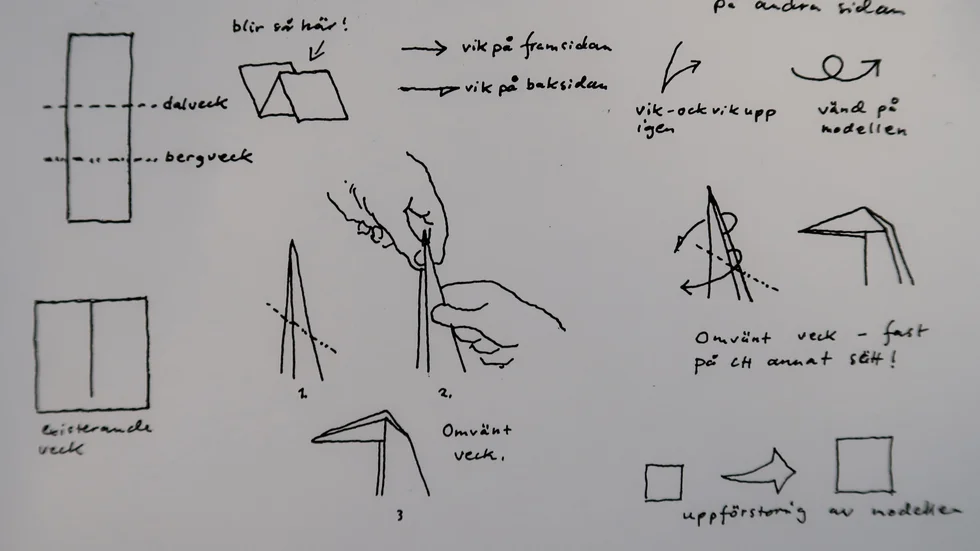 på andra sidan
blir så här!
vik på framsidan
vik på baksidan
dalveck
bergveck
vik-ock vik upp
igen
vänd på
modellen
existerande
veck
1.
2.
3
Omvänt
veck.
Omvänt veck - fast
på ett annat sätt!
uppförstorig av modellen